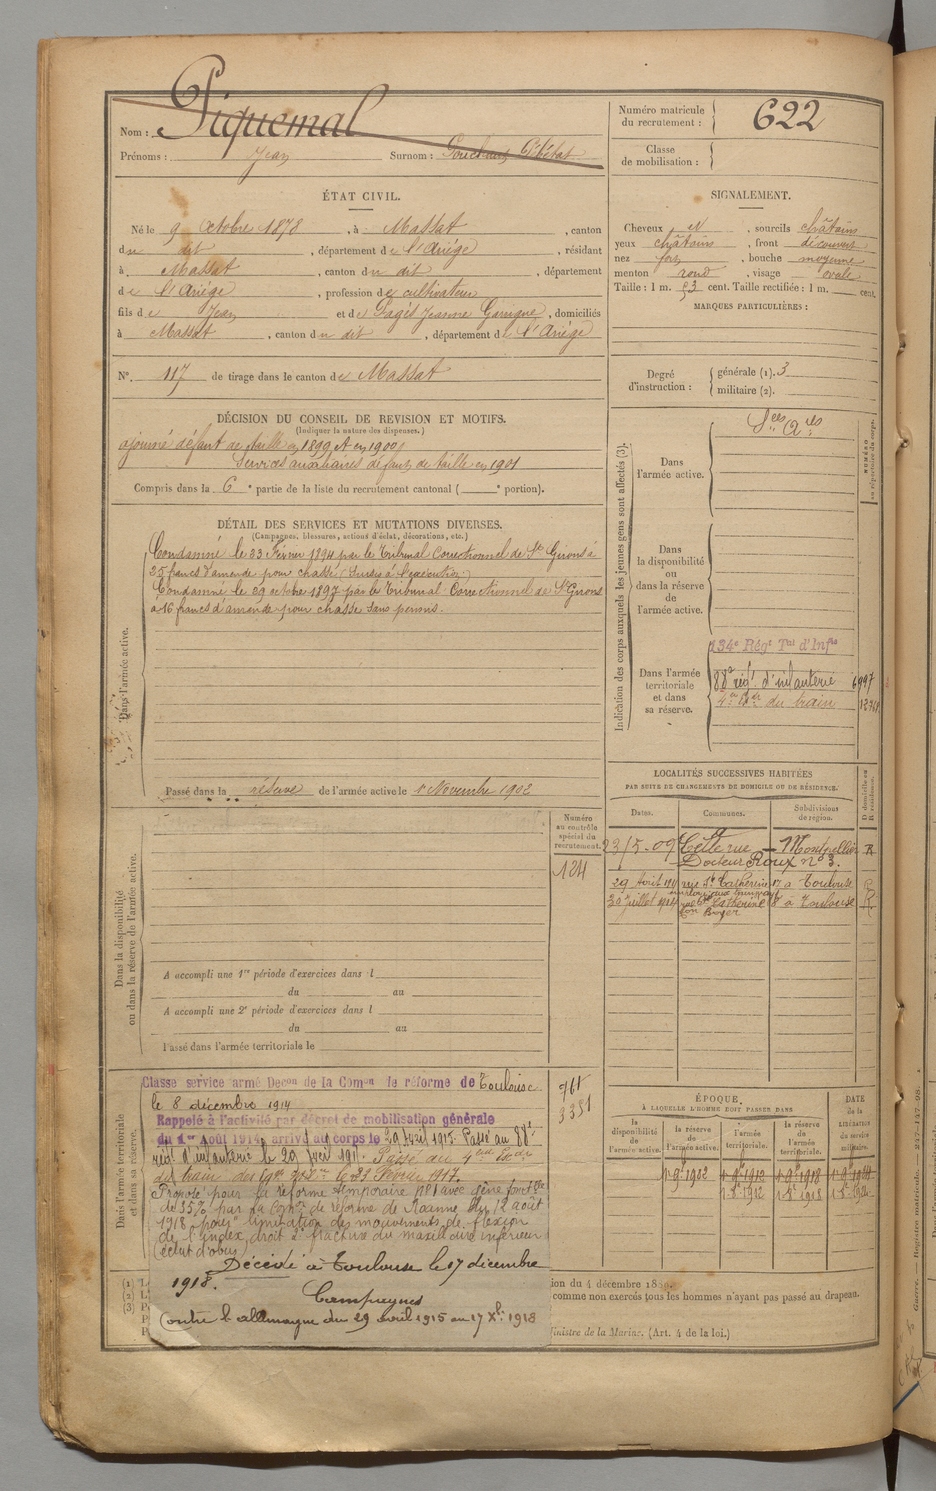 Nom : Piquemal
Prénoms : Jean Surnom :
Numéro matricule du recrutement : 622
Classe de mobilisation :
ÉTAT CIVIL.
Né le 9 Octobre 1878, à Massat, canton
du dit, département de l'Ariége, résidant
à Massat, canton du dit, département
de l'Ariége, profession de cultivateur
fils de Jean et de Pagès Jeanne Garrigue, domiciliés
à Massat, canton du dit, département de l'Ariége
N°. 117 de tirage dans le canton de Massat
SIGNALEMENT.
Cheveux N, sourcils châtains
yeux châtains, front découvert
nez fort, bouche moyenne
menton rond, visage ovale
Taille : 1 m. 53 cent. Taille rectifiée : 1 m. cent.
MARQUES PARTICULIÈRES :
Degré d'instruction : générale (1). 3
militaire (2).
DÉCISION DU CONSEIL DE REVISION ET MOTIFS.
(Indiquer la nature des dispenses.)
ajourné défaut de taille en 1899 et en 1900
Services auxiliaires défaut de taille en 1901
Compris dans la 6e partie de la liste du recrutement cantonal ( e portion).
DÉTAIL DES SERVICES ET MUTATIONS DIVERSES.
(Campagnes, blessures, actions d'éclat, décorations, etc.)
Condamné le 23 Février 1894 par le Tribunal Correctionnel de St Girons à
25 francs d'amende pour chasse (Sursis à l'exécution)
Condamné le 29 octobre 1897 par le Tribunal Correctionnel de St Girons
à 16 francs d'amende pour chasse sans permis.
Dans l'armée active.
Passé dans la réserve de l'armée active le 1er Novembre 1902
Indication des corps auxquels les jeunes gens sont affectés (3).
NUMÉRO au répertoire du corps.
Dans l'armée active.
Sces Ares
Dans la disponibilité ou dans la réserve de l'armée active.
Dans l'armée territoriale et dans sa réserve.
134e Régt Tal d'Infie
88e régt. d'infanterie 6997
4e Eon du train
LOCALITÉS SUCCESSIVES HABITÉES
PAR SUITE DE CHANGEMENTS DE DOMICILE OU DE RÉSIDENCE.
Dates. Communes. Subdivisions de région. D domicile ou R résidence.
23/5-09 Cette rue Montpellier R
Docteur Roux no 3.
29 Août rue Ste Catherine 17 à Toulouse R
30 Juillet 1914 rue Ste Catherine 8 à Toulouse R
Dans la disponibilité ou dans la réserve de l'armée active.
Numéro au contrôle spécial du recrutement.
124
A accompli une 1re période d'exercices dans l
du au
A accompli une 2e période d'exercices dans l
du au
Passé dans l'armée territoriale le
Dans l'armée territoriale et dans sa réserve.
Classe service armé Decon de la Comon de réforme de Toulouse
le 8 décembre 1914
Rappelé à l'activité par décret de mobilisation générale
du 1er Août 1914, arrivé au corps le 29 Avril 1915. Passé au 88e
régt. d'infanterie le 29 Avril 191 . Passé au 4eme Eon du
train des équipages le 21 Février 1917.
Proposé pour la réforme temporaire N° 1 avec gêne fonctlle
de 35% par la Comon de réforme de Roanne du 12 août
1918 pour "limitation des mouvements de flexion
de l'index droit et fracture du maxillaire inférieur
(éclat d'obus)
Décédé à Toulouse le 17 décembre
1918.
Campagnes
Contre l'allemagne du 29 avril 1915 au 17 Xbre 1918
3351
ÉPOQUE
À LAQUELLE L'HOMME DOIT PASSER DANS
la disponibilité de l'armée active. la réserve de l'armée active. l'armée territoriale. la réserve de l'armée territoriale. DATE de la LIBÉRATION du service militaire.
ion du 4 décembre 18
comme non exercés tous les hommes n'ayant pas passé au drapeau.
inistre de la Marine. (Art. 4 de la loi.)
(1)
(2)
(3)